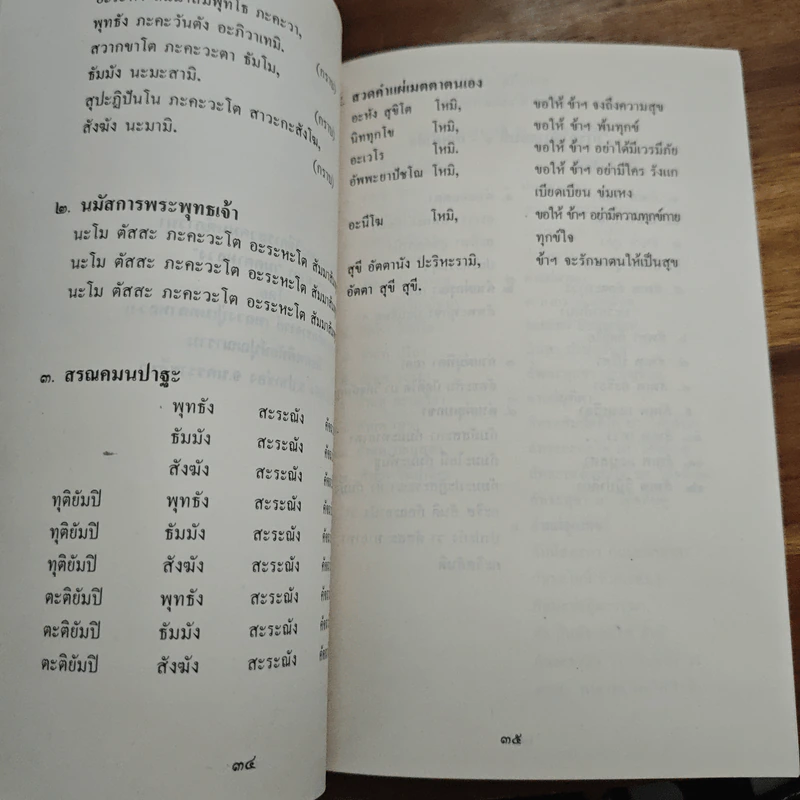 อะระหัง สัมมาสัมพุทโธ ภะคะวา,
พุทธัง ภะคะวันตัง อะภิวาเทมิ.
(กราบ)
สวากขาโต ภะคะวะตา ธัมโม,
ธัมมัง นะมะสามิ.
(กราบ)
สุปะฏิปันโน ภะคะวะโต สาวะกะสังโฆ,
สังฆัง นะมามิ.
(กราบ)
๒. นมัสการพระพุทธเจ้า
นะโม ตัสสะ ภะคะวะโต อะระหะโต
นะโม ตัสสะ ภะคะวะโต อะระหะโต
นะโม ตัสสะ ภะคะวะโต อะระหะโต
๓. สรณคมนปาฐะ
พุทธัง สะระณัง
ธัมมัง สะระณัง
สังฆัง สะระณัง
ทุติยัมปิ พุทธัง สะระณัง
ทุติยัมปิ ธัมมัง สะระณัง
ทุติยัมปิ สังฆัง สะระณัง
ตะติยัมปิ พุทธัง สะระณัง
ตะติยัมปิ ธัมมัง สะระณัง
ตะติยัมปิ สังฆัง สะระณัง
๓๔
สวดคำแผ่เมตตาตนเอง
อะหัง สุขิโต โหมิ, ขอให้ ข้าฯ จงถึงความสุข
นิททุกโข โหมิ, ขอให้ ข้าฯ พ้นทุกข์
อะเวโร โหมิ. ขอให้ ข้าฯ อย่าได้มีเวรมีภัย
อัพพะยาปัชโฌ โหมิ, ขอให้ ข้าฯ อย่ามีใคร รังแก
เบียดเบียน ข่มเหง
อะนีโฆ โหมิ, ขอให้ ข้าฯ อย่ามีความทุกข์กาย
ทุกข์ใจ
สุขี อัตตานัง ปะริหะรามิ, ข้าฯ จะรักษาตนให้เป็นสุข
อัตตา สุขี สุขี.
๓๕